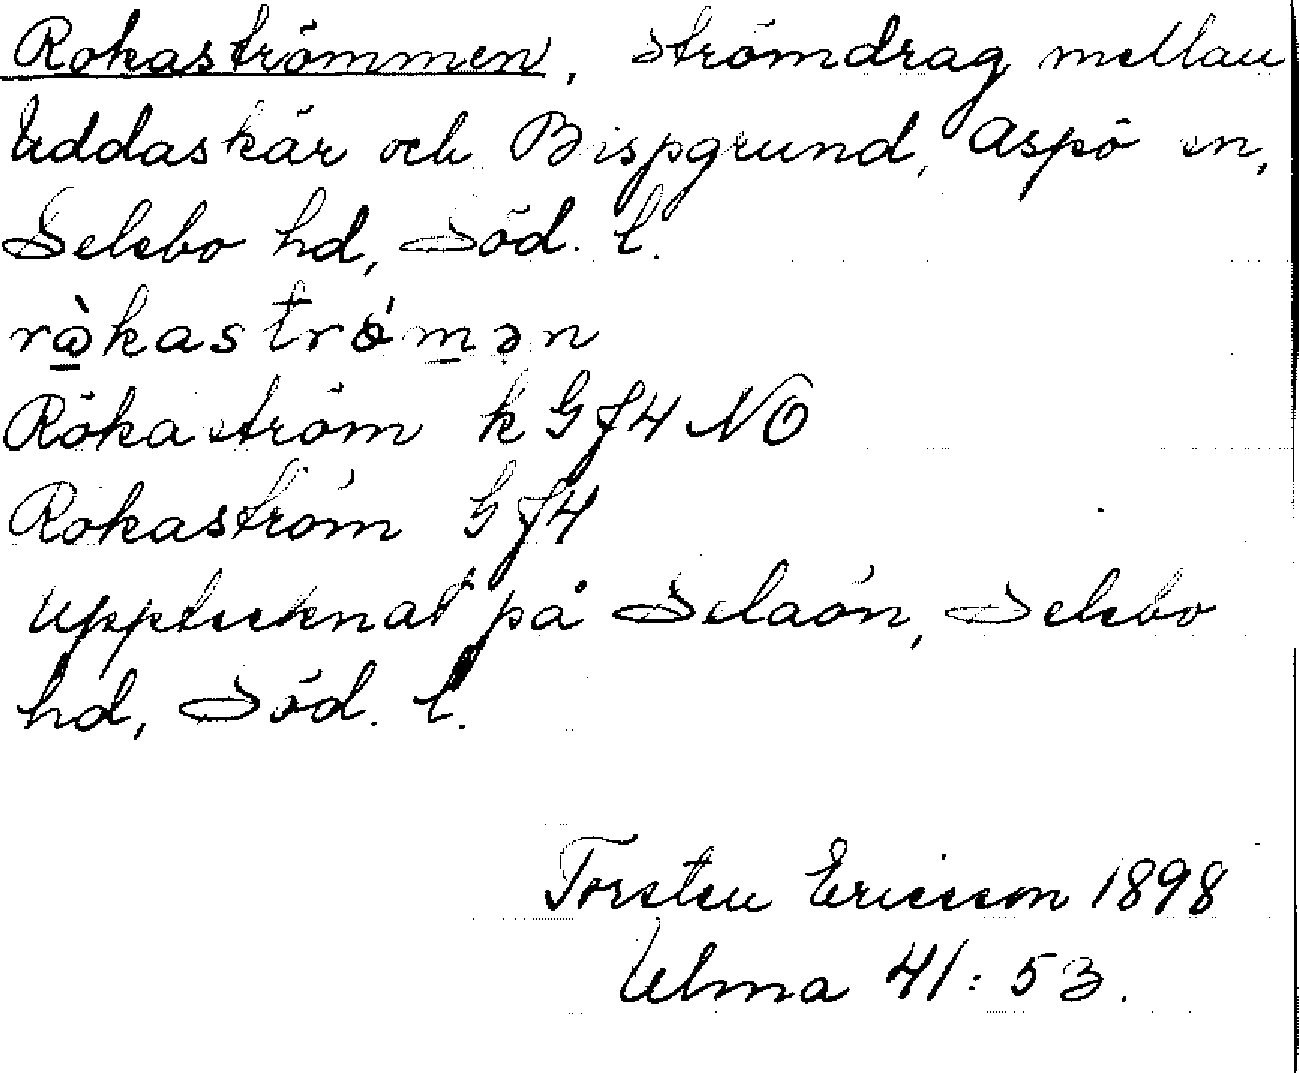 Rokaströmmen, strömdrag mellan
Uddaskär och Bispgrund, Aspö sn,
Selebo hd, Söd. l.
ròkastrǿmən
Rökaström k GJ4 NO
Rokaström GJ4
Upptecknat på Selaön, Selebo
hd, Söd. l.
Torsten Ericsson 1898
Ulma 41:53.